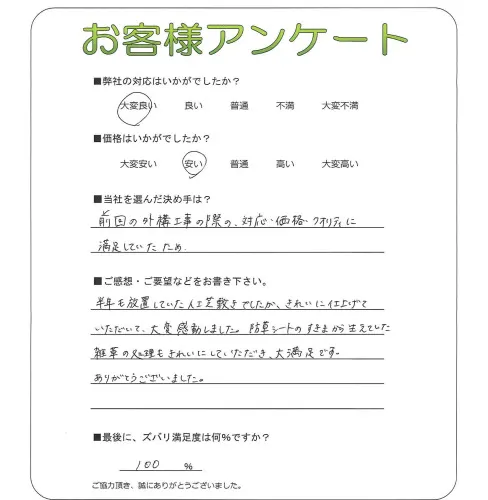 お客様アンケート
■弊社の対応はいかがでしたか?
大変良い 良い 普通 不満 大変不満
■価格はいかがでしたか?
大変安い 安い 普通 高い 大変高い
■当社を選んだ決め手は?
前回の外構工事の際の、対応・価格・クオリティに
満足していたため
■ご感想・ご要望などをお書き下さい。
半年も放置していた人工芝敷きでしたが、きれいに仕上げて
いただいて、大変感動しました。防草シートのすきまから生えてした
雑草の処理もきれいにしていただき、大満足です。
ありがとうございました。
■最後に、ズバリ満足度は何%ですか?
100 %
ご協力頂き、誠にありがとうございました。